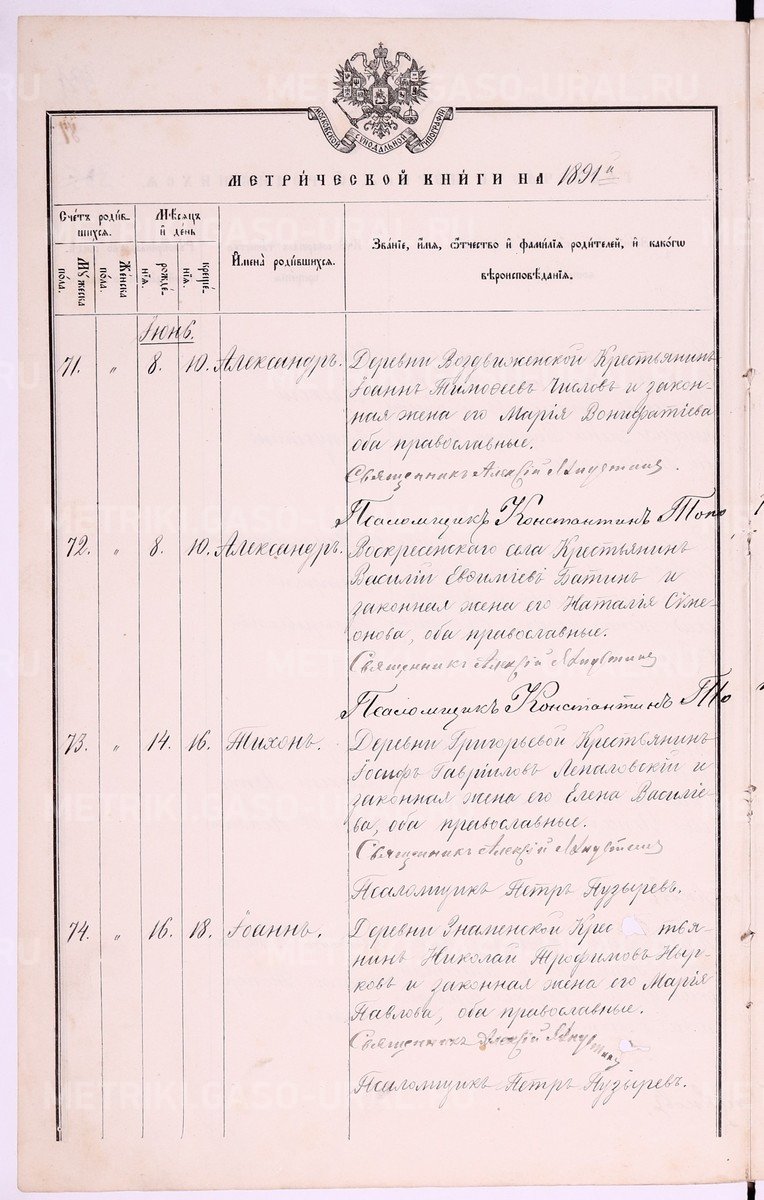 МОСКОВСКОЙ СѴНОДАЛЬНОЙ ТИПОГРАФІИ
МЕТРИ́ЧЕСКОЙ КНИ́ГИ НА 1891й
Сче́тъ роди́в-
шихся.
Мѣ́сяцъ
и҆ де́нь
И҆мена̀ роди́вшихся.
Зва́ніе, и҆́мя, ѻ҆́тчество и҆ фами́лія роди́телей, и҆ како́гѡ
вѣроисповѣ́данія.
Му́жеска
по́ла.
Же́нска
по́ла.
рожде́-
нія.
креще́-
нія.
Іюнь.
71. „ 8. 10. Александръ. Деревни Воздвиженской Крестьянинъ
Іоаннъ Тимоѳеевъ Числовъ и закон-
ная жена его Марія Вонифатіева
оба православные.
Священникъ Алексій
Псаломщикъ Константинъ Топо
72. „ 8. 10. Александръ. Воскресенскаго села Крестьянинъ
Василій Евѳиміевъ Батинъ и
законная жена его Наталія Сѵме-
онова, оба православные.
Священникъ Алексій
Псаломщикъ Константинъ То
73. „ 14. 16. Тихонъ. Деревни Григорьевой Крестьянинъ
Іосифъ Гавріиловъ Лепаловскій и
законная жена его Елена Василіе-
ва, оба православные.
Священникъ Алексій
Псаломщикъ Петръ Пузыревъ.
74. „ 16. 18. Іоаннъ. Деревни Знаменской Крес тья-
нинъ Николай Трофимовъ Ныр-
ковъ и законная жена его Марія
Павлова, оба православные.
Священникъ Алексій
Псаломщикъ Петръ Пузыревъ.